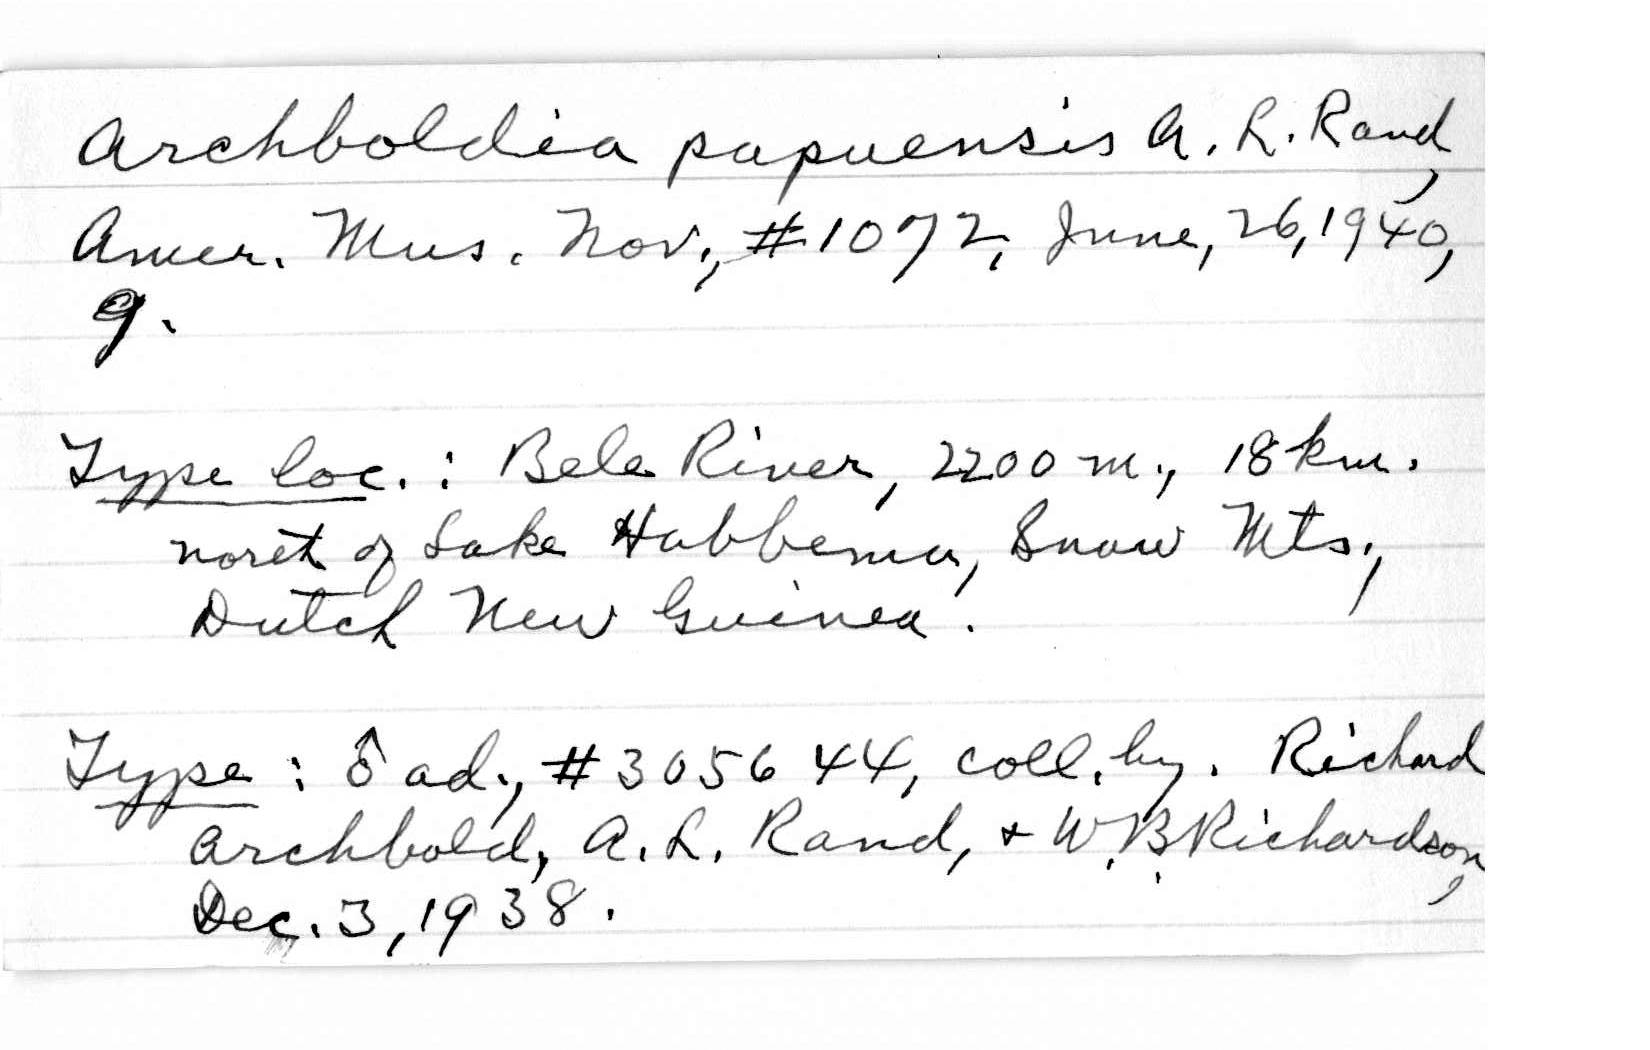 Archboldia papuensis A. L. Rand,
Amer. Mus. Nov., #1072, June, 26, 1940,
9.
Type loc. : Bele River, 2200 m., 18 km.
north of Lake Habbema, Snow Mts.,
Dutch New Guinea.
Type : ♂ ad., #305644, coll. by. Richard
Archbold, A. L. Rand, + W. B. Richardson,
Dec. 3, 1938.